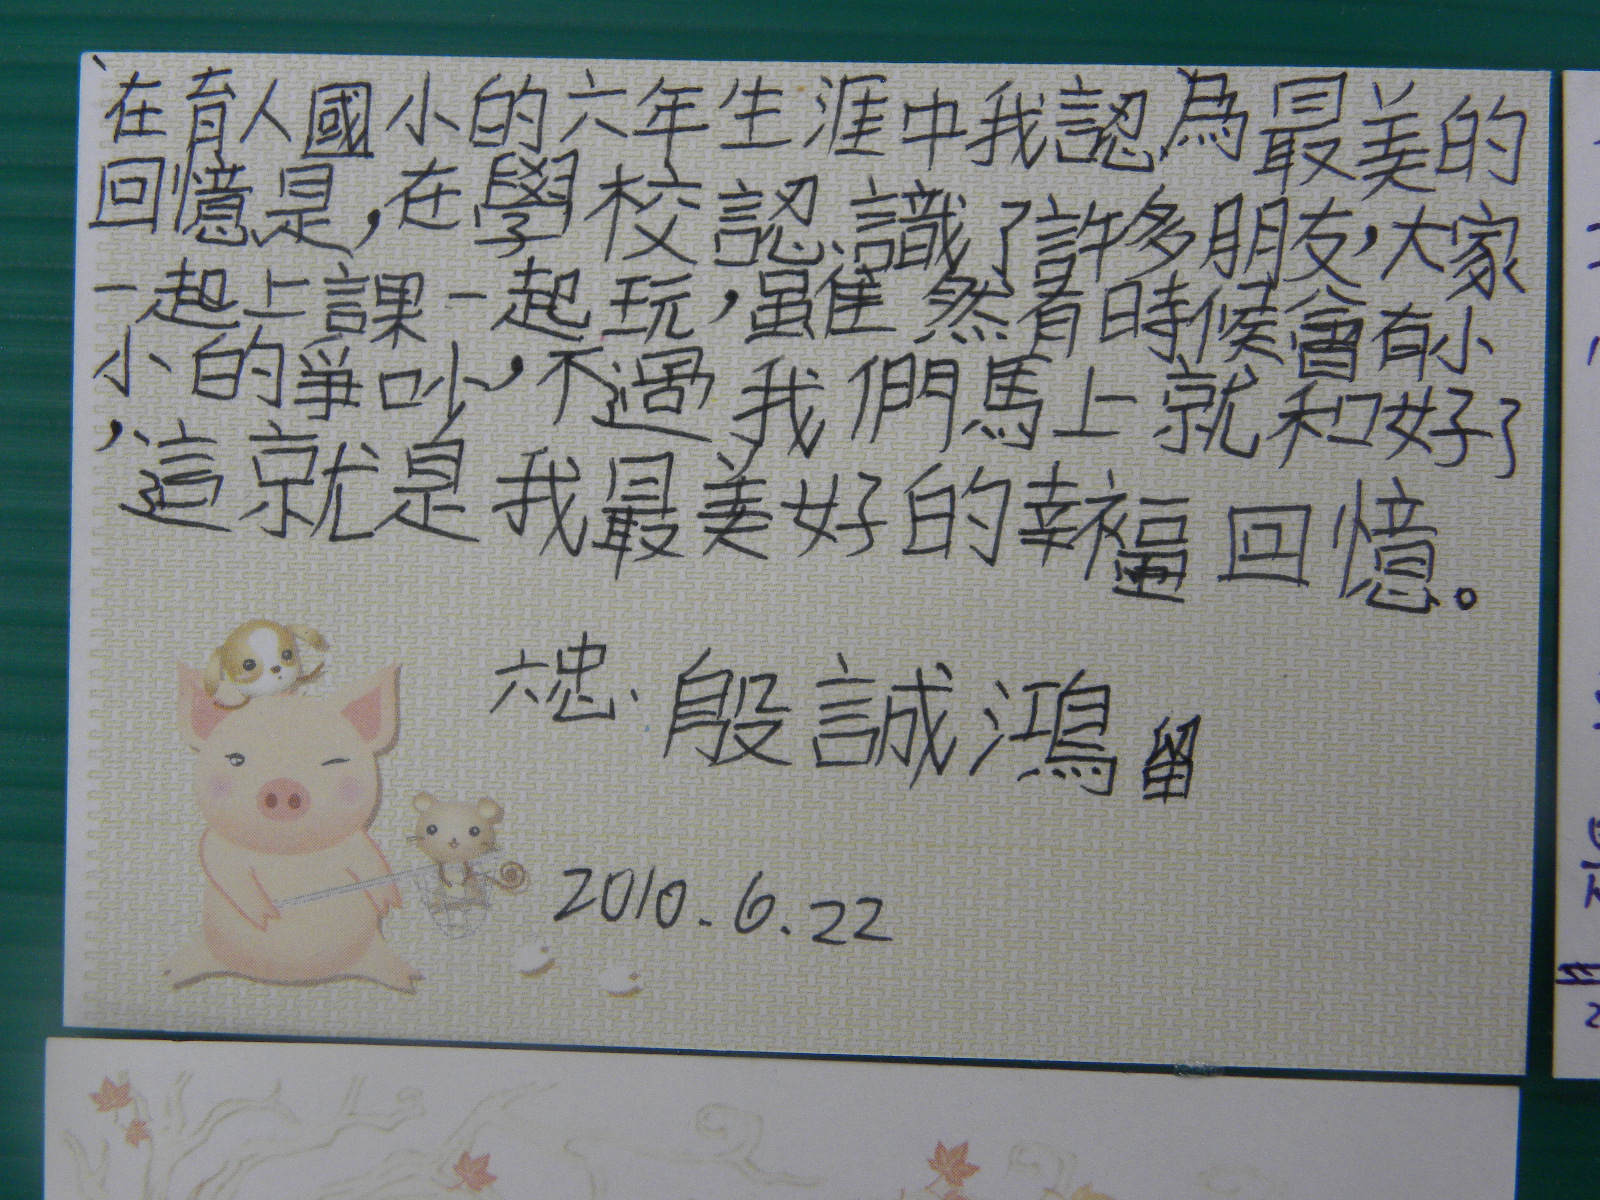 在育人國小的六年生涯中我認為最美的
回憶是,在學校認識了許多朋友,大家
一起上課一起玩,雖然有時候會有小
小的爭吵,不過我們馬上就和好了
,這就是我最美好的幸福回憶。
六忠、殷誠鴻 留
2010.6.22